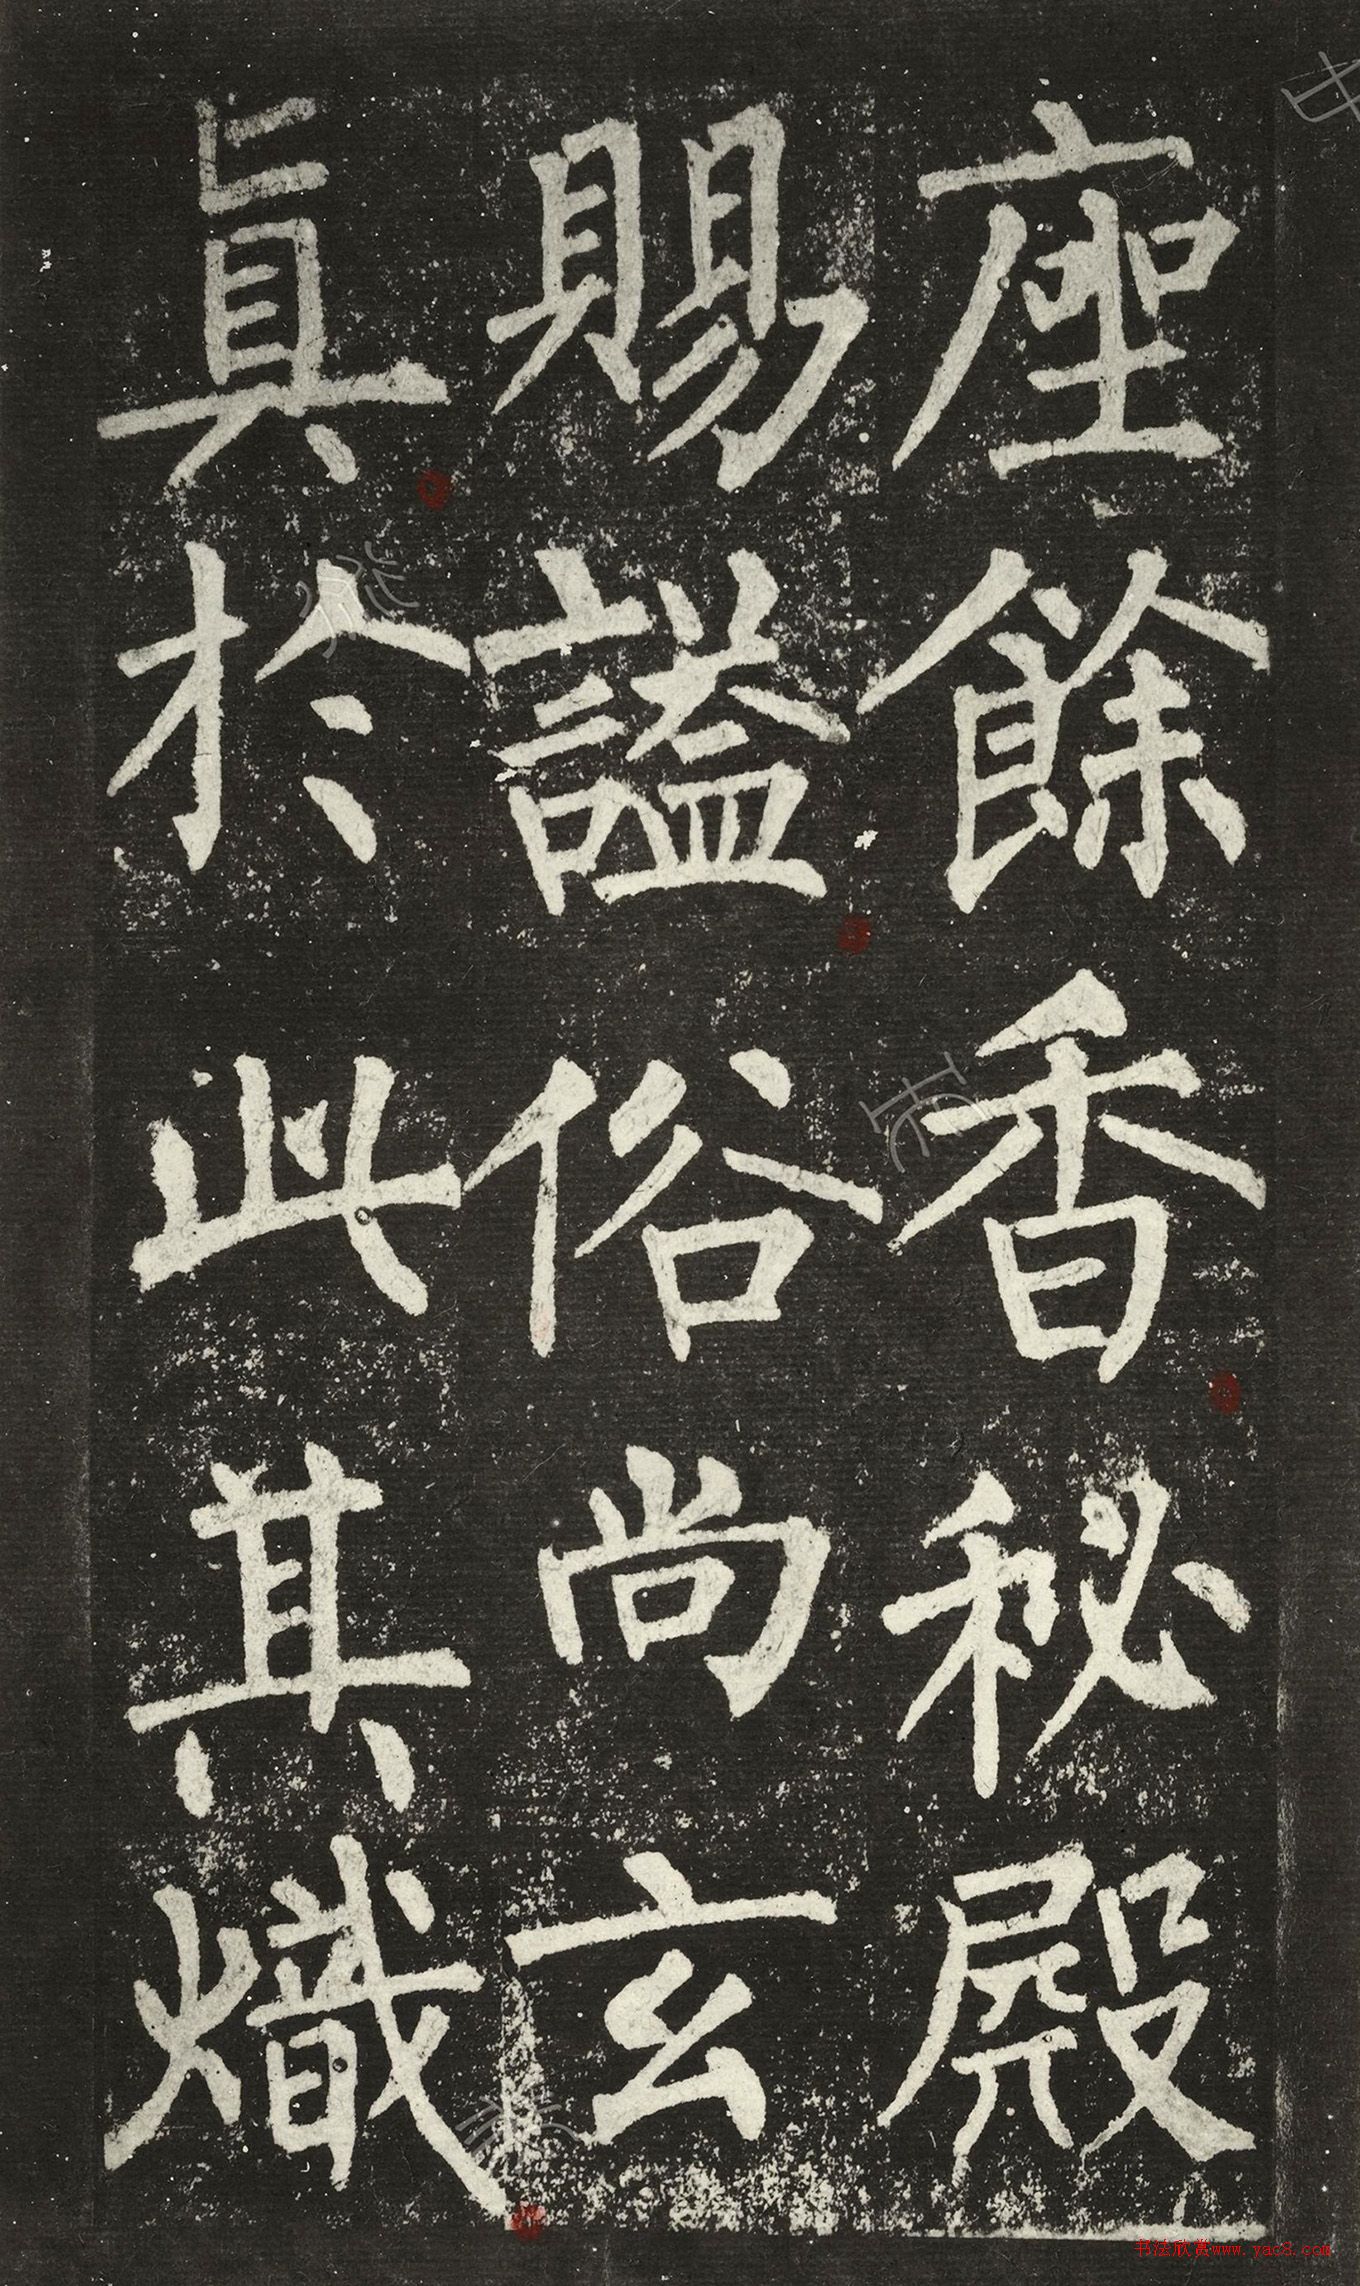 座餘香秘殿
賜謚俗尚玄
真於此其熾
书法欣赏www.yac8.com